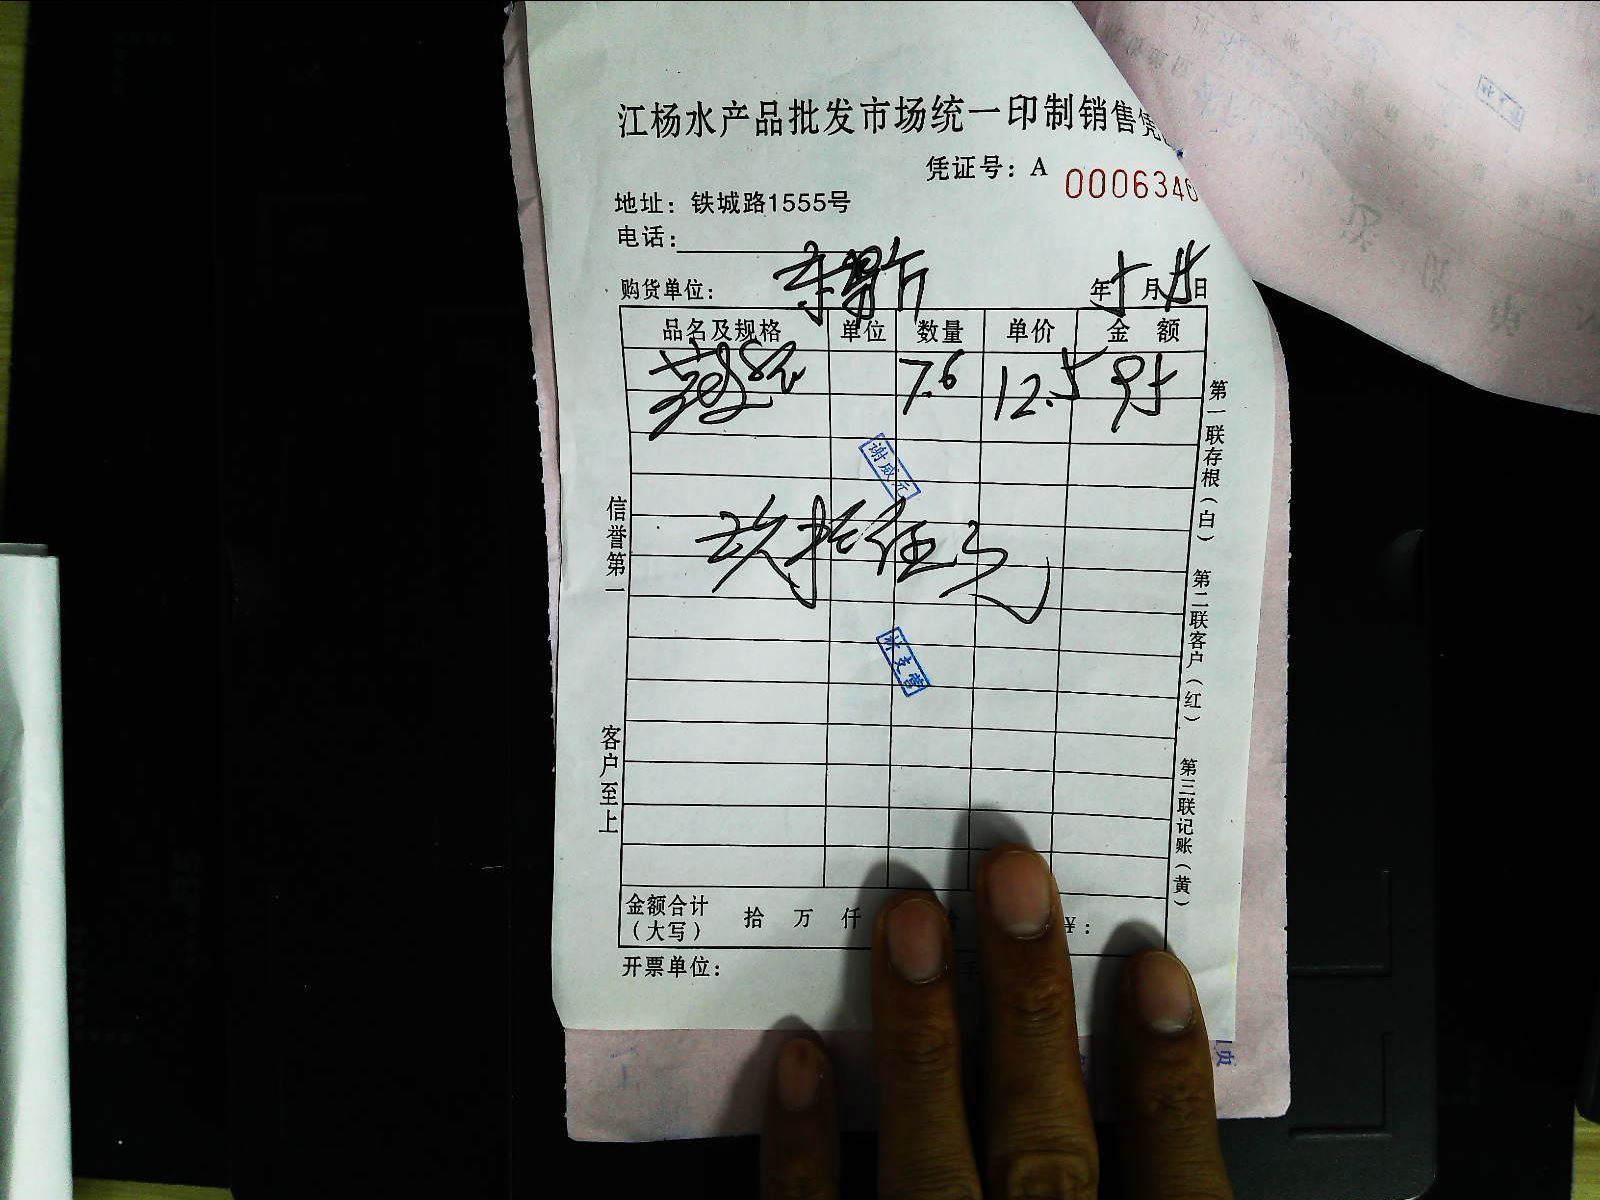 江杨水产品批发市场统一印制销售凭
凭证号：A 0006346
地址：铁城路1555号
电话：
购货单位： 年5月 日
品名及规格 单位 数量 单价 金额
7.6 12.5 95
玖拾伍元
信誉第一
客户至上
第一联存根（白） 第二联客户（红） 第三联记账（黄）
金额合计（大写） 拾 万 仟 ¥：
开票单位：